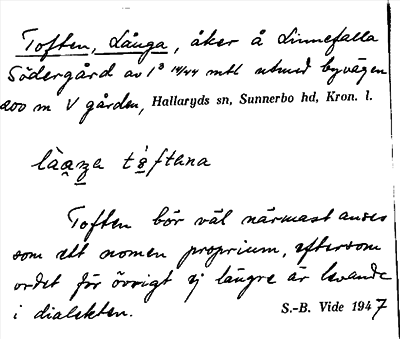 Toften, Långa, åker å Linnefalla
Södergård av 1³ 14/44 mtl utmed byvägen
200 m V gården, Hallaryds sn, Sunnerbo hd, Kron. l.
Toften bör väl närmast anses
som ett nomen proprium, eftersom
ordet för övrigt ej längre är levande
i dialekten. S.-B. Vide 1947